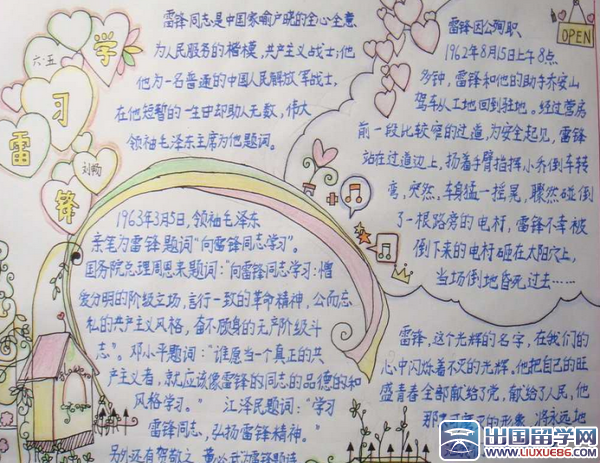 学习雷锋
六.五
刘畅
雷锋同志是中国家喻户晓的全心全意
为人民服务的楷模,共产主义战士;他
他为一名普通的中国人民解放军战士,
在他短暂的一生中却助人无数,伟大
领袖毛泽东主席为他题词。
1963年3月5日,领袖毛泽东
亲笔为雷锋题词"向雷锋同志学习"。
国务院总理周恩来题词:"向雷锋同志学习:憎
爱分明的阶级立场,言行一致的革命精神,公而忘
私的共产主义风格,奋不顾身的无产阶级斗
志"。邓小平题词:"谁愿当一个真正的共
产主义者,就应该像雷锋的同志的品德的和
风格学习。" 江泽民题词:"学习
雷锋同志,弘扬雷锋精神。"
另外还有贺敬之、董必武为雷锋题诗
雷锋因公殉职
OPEN
1962年8月15日上午8点
多钟,雷锋和他的助手乔安山
驾车从工地回到驻地。经过营房
前一段比较窄的过道,为安全起见,雷锋
站在过道边上,扬着手臂指挥小乔倒车转
弯,突然,车身猛一摇晃,骤然碰倒
了一根路旁的电村,雷锋不幸被
倒下来的电村砸在太阳穴上,
当场倒地昏死过去……
雷锋,这个光辉的名字,在我们的
心中闪烁着不灭的光辉。他把自己的旺
盛青春全部献给了党,献给了人民,他
那 的形象,将永远地
出国留学网
www.liuxue86.com